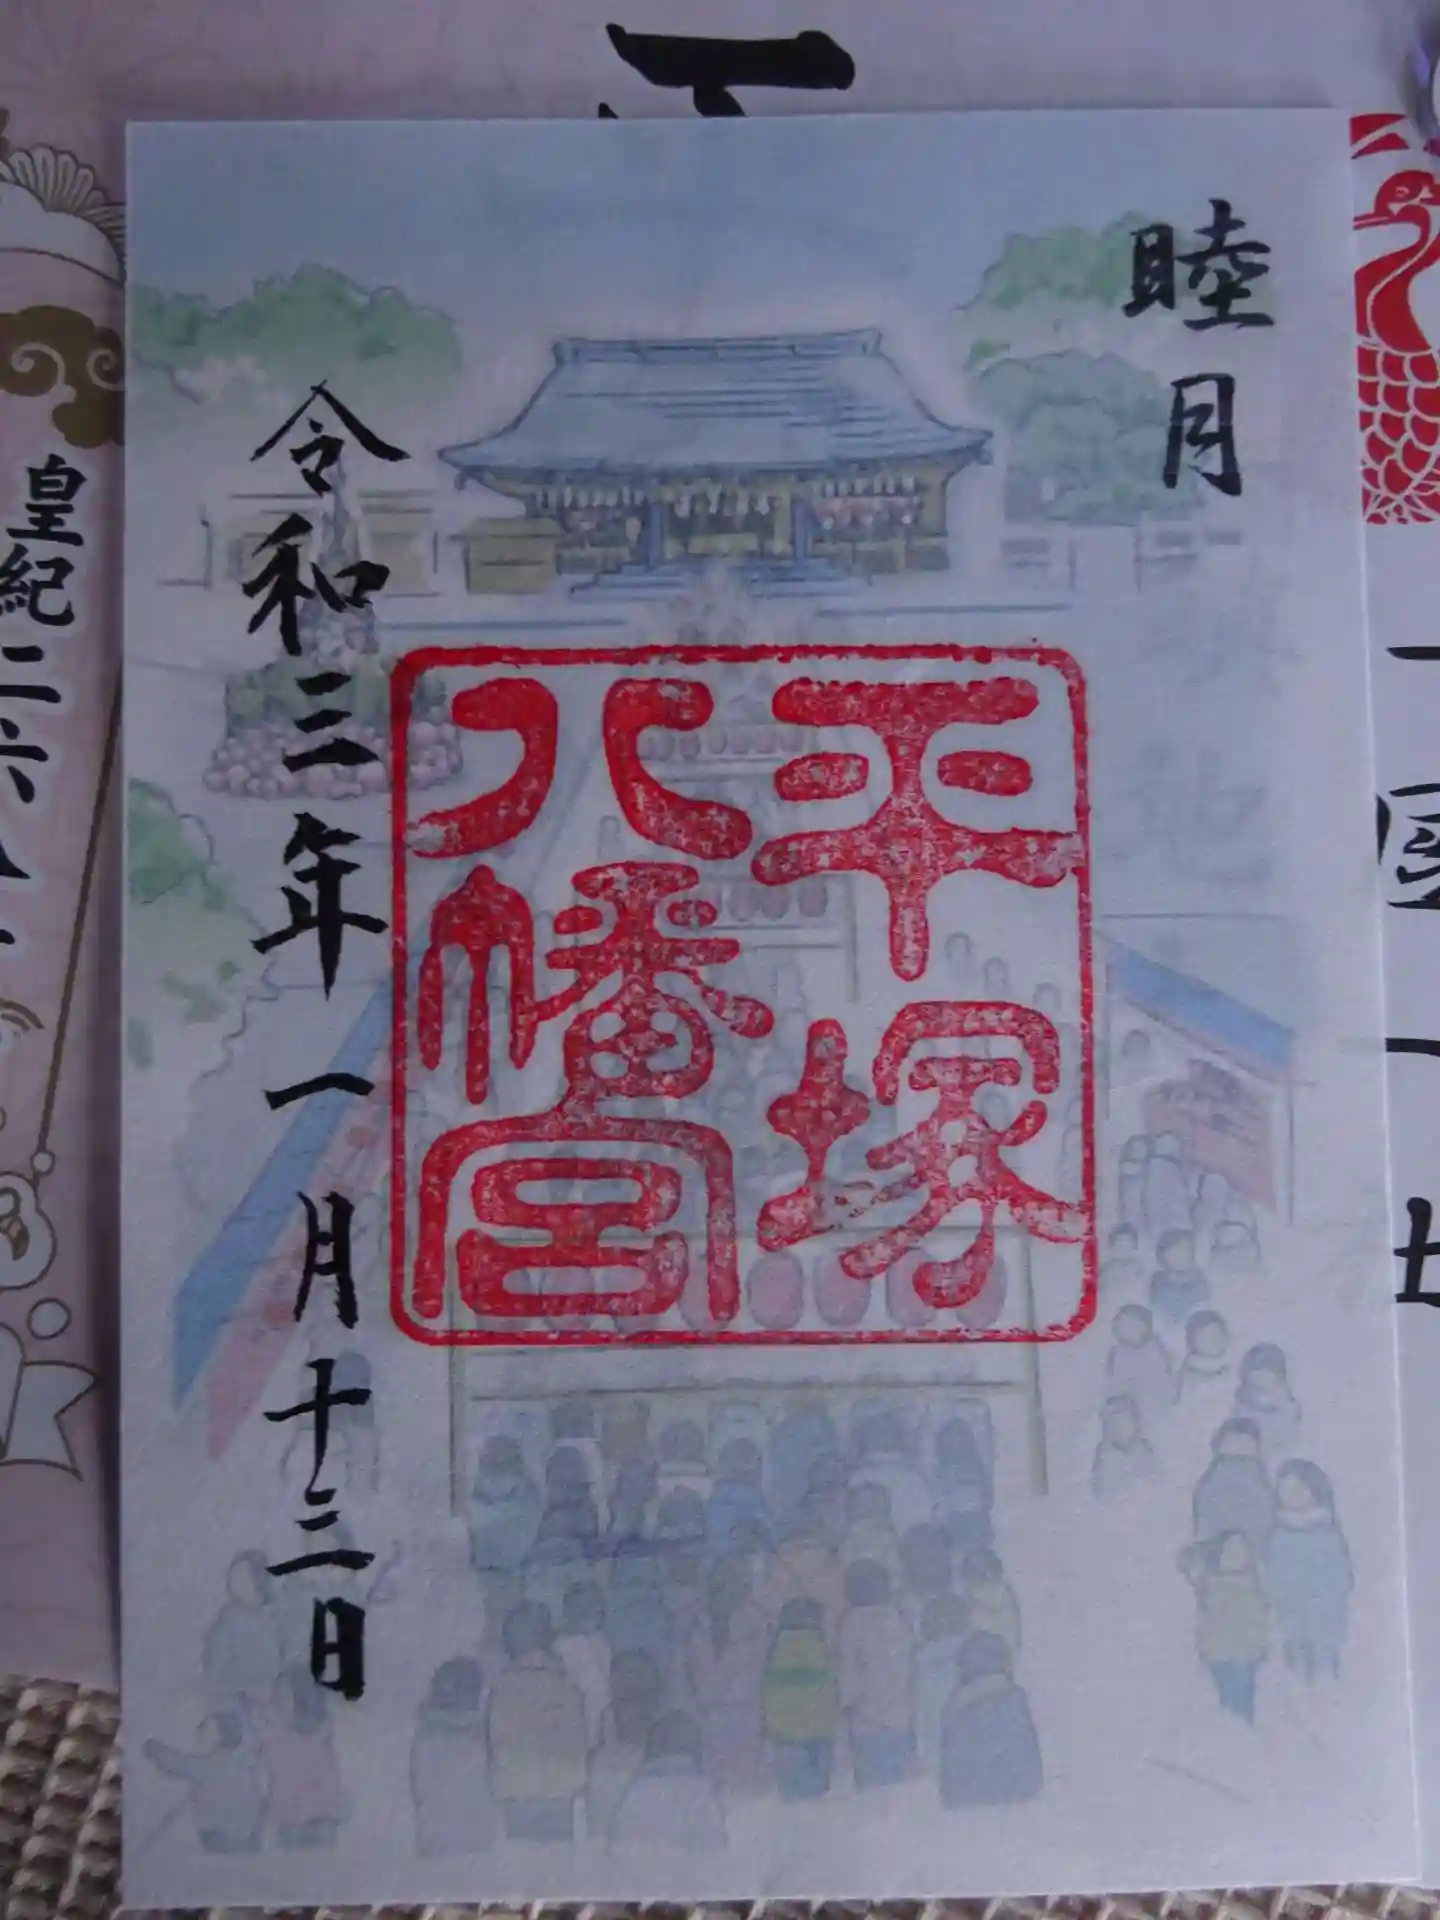 睦月
平塚
八幡宮
令和三年一月十三日
皇紀二六